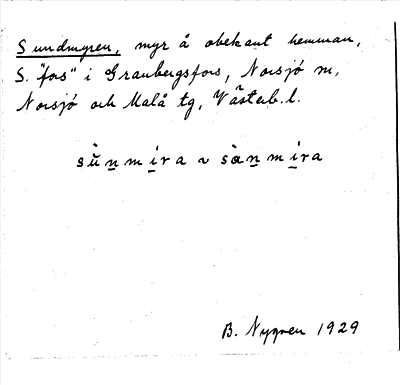 Sundmyren, myr å obekant hemman,
S. "fors" i Granbergsfors, Norsjö sn,
Norsjö och Malå tg, Västerb. l.
sùn̲mi̲ra ~ sàn̲mi̲ra
B. Nygren 1929